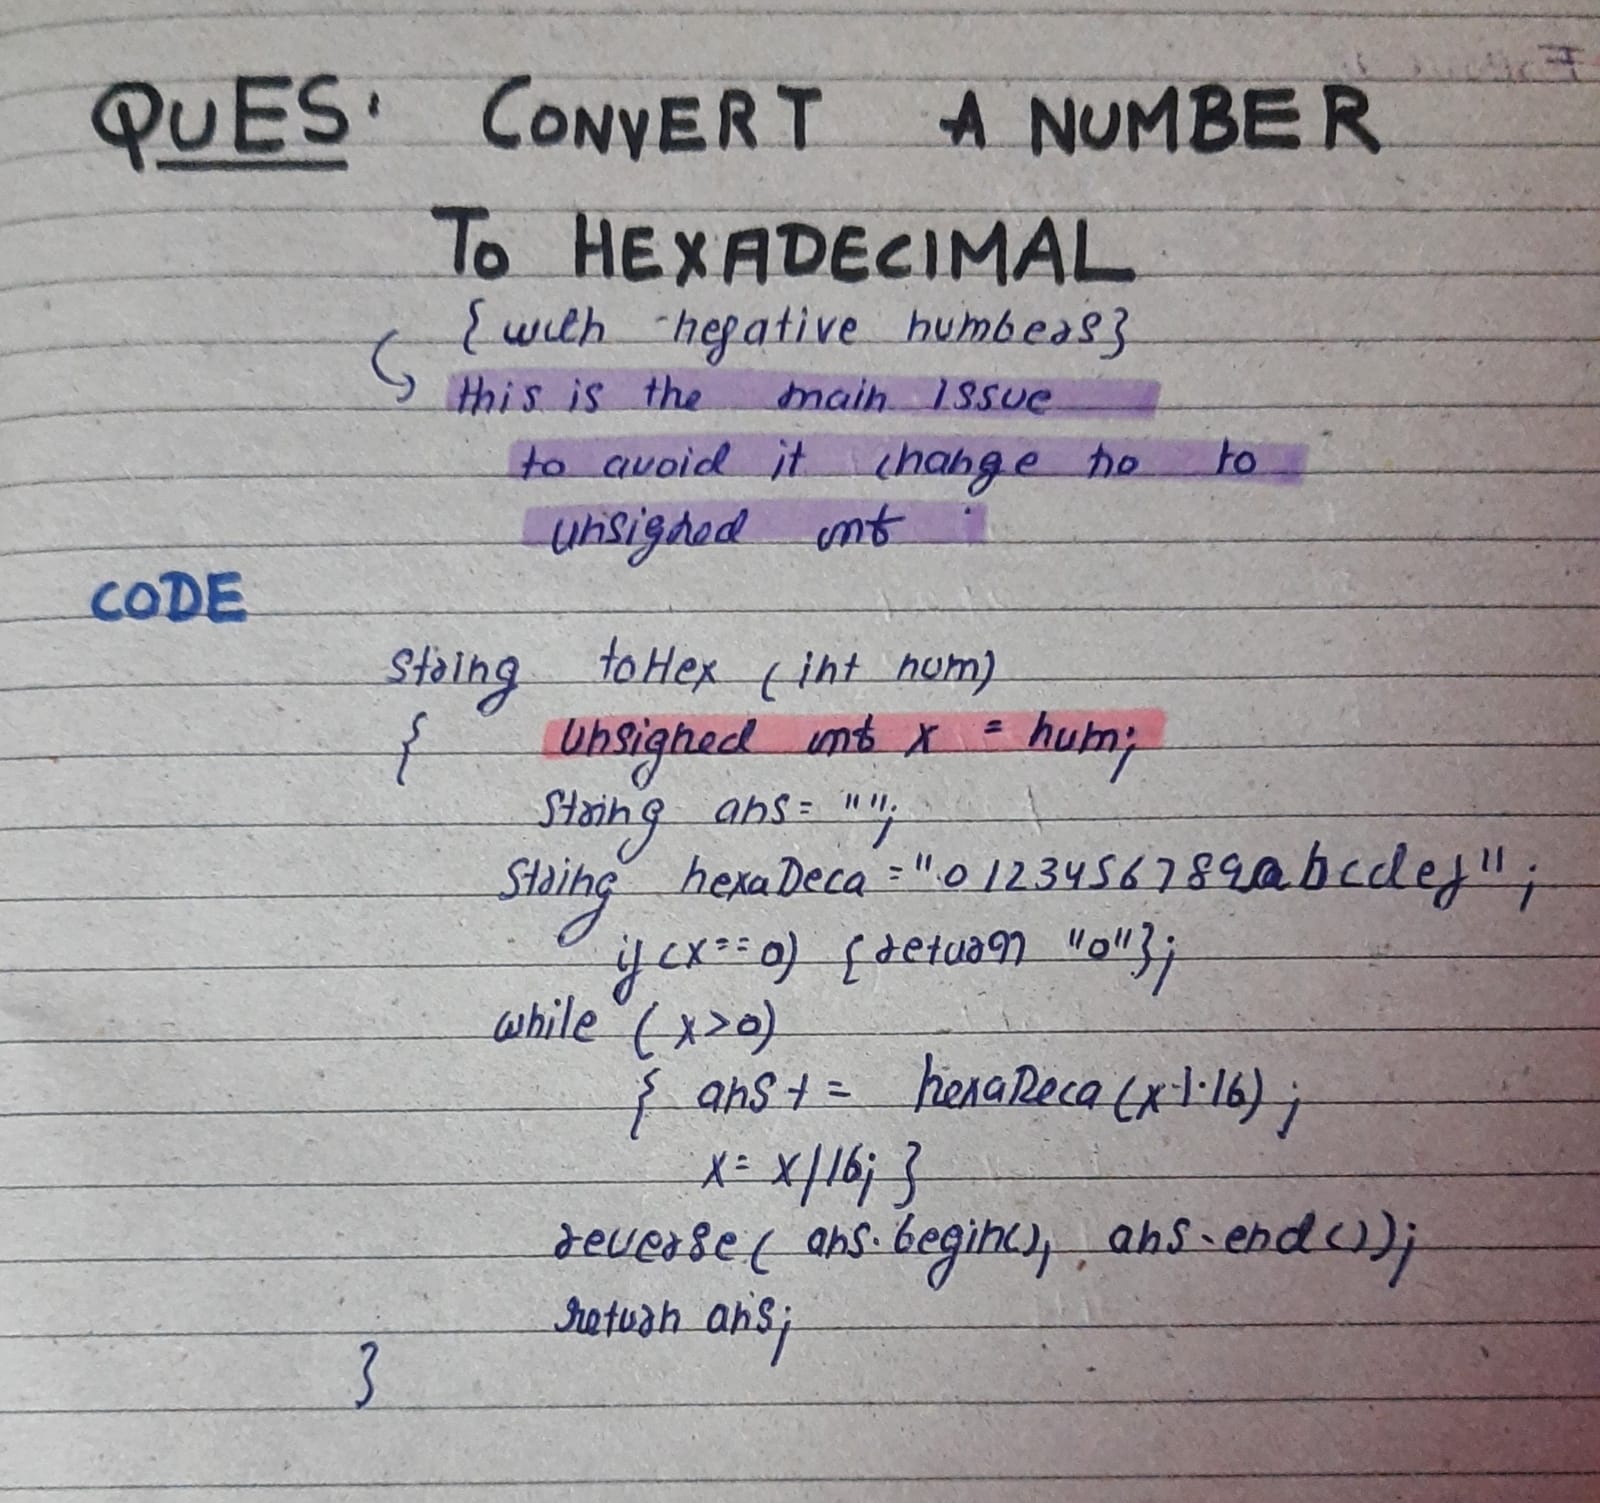 QUES. CONVERT A NUMBER
TO HEXADECIMAL
{with negative numbers}
this is the main issue
to avoid it change no to
unsigned int
CODE
string toHex (int num)
{ unsigned int x = num;
string ans = "";
string hexaDeca = "0123456789abcdef";
if (x==0) {return "0"};
while (x>0)
{ ans += hexaDeca(x%16);
x = x/16; }
reverse( ans.begin(), ans.end());
return ans;
}